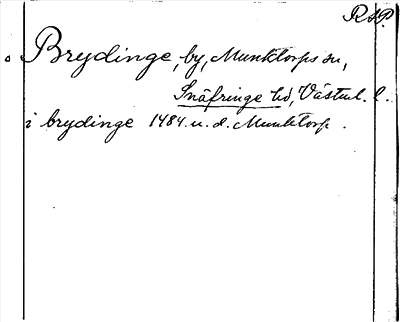 R.A.P.
Brydinge, by, Munktorps sn,
Snäfringe hd, Västml. l.
i brydinge 1484. u. d. Munktorp.